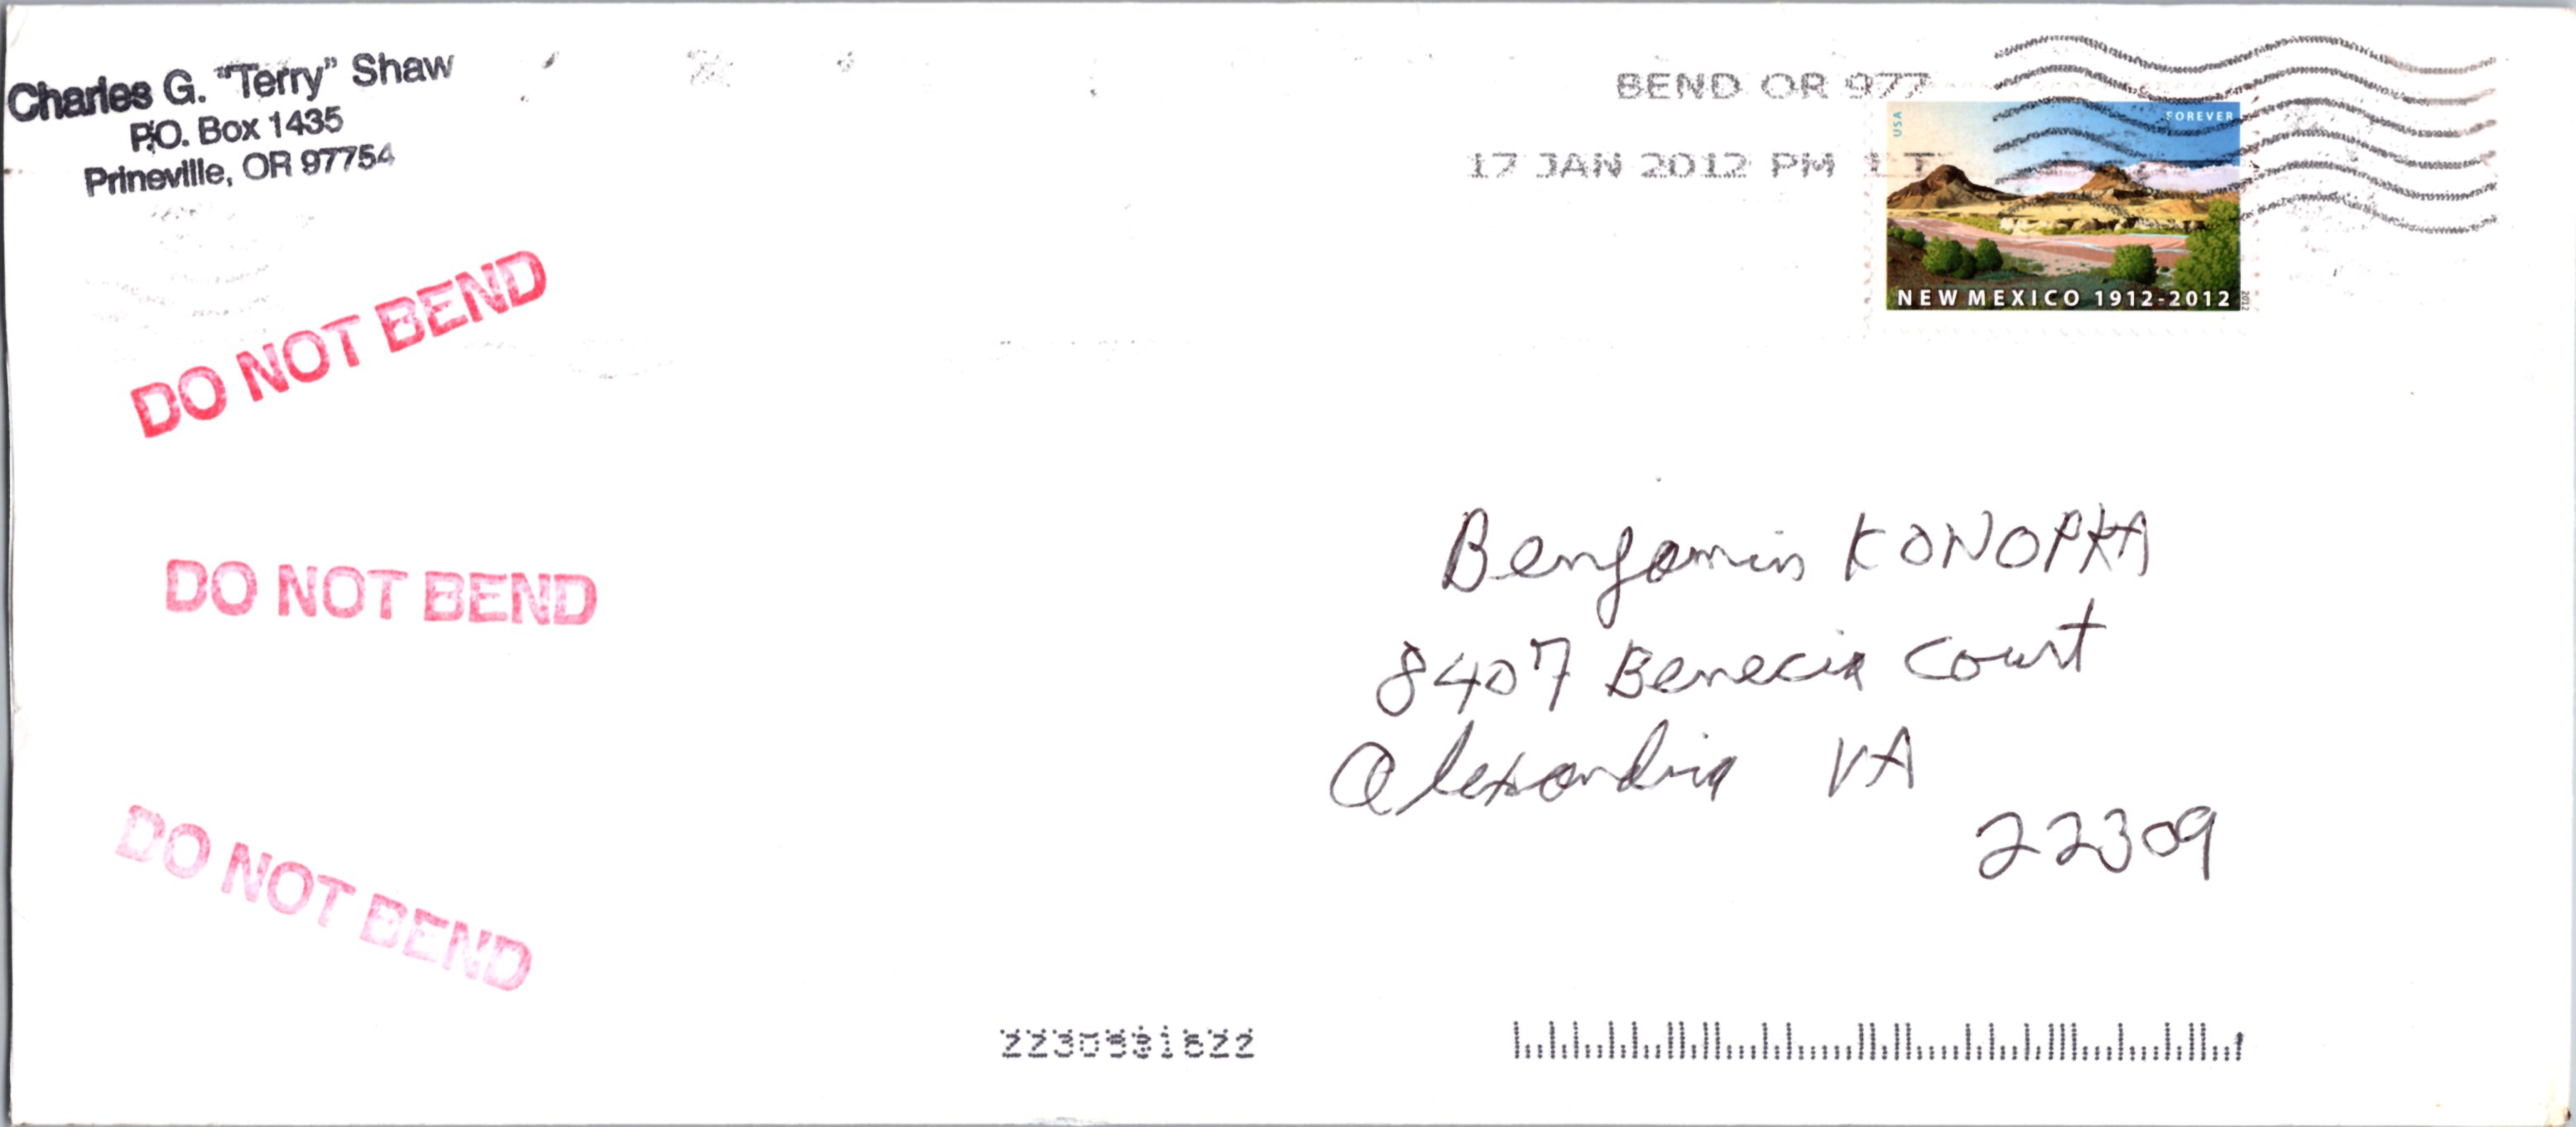 Charles G. "Terry" Shaw
P.O. Box 1435
Prineville, OR 97754
BEND OR 977
17 JAN 2012 PM 1 T
USA
FOREVER
NEW MEXICO 1912-2012
2012
DO NOT BEND
DO NOT BEND
DO NOT BEND
Benjamin KONOPKA
8407 Benecia Court
Alexandria VA
22309